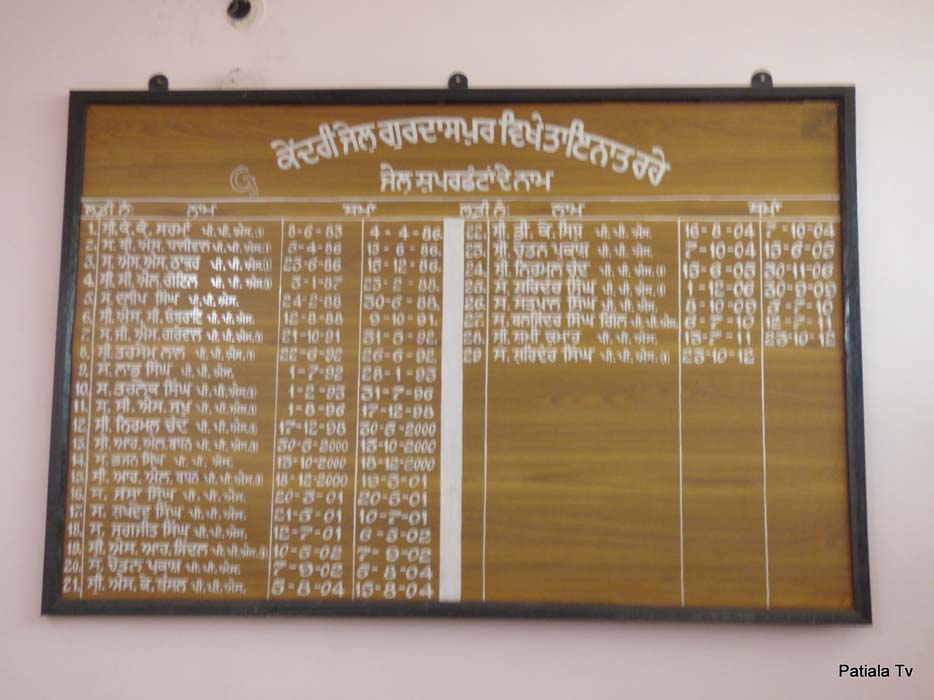 ਕੇਂਦਰੀ ਜੇਲ੍ਹ ਗੁਰਦਾਸਪੁਰ ਵਿਖੇ ਤਾਇਨਾਤ ਰਹੇ
ਜੇਲ੍ਹ ਸੁਪਰਡੰਟਾਂ ਦੇ ਨਾਮ
ਲੜੀ ਨੰ: ਨਾਮ ਸਮਾਂ
1. ਸ੍ਰੀ.ਕੇ.ਕੇ. ਸ਼ਰਮਾਂ ਪੀ.ਪੀ.ਐਸ.(1) 8-6-83 4-4-86
2. ਸ. ਬੀ.ਐਸ. ਪੀ.ਪੀ.ਐਸ.(1) 5-4-86 13-6-86
3. ਸ. ਐਸ.ਐਸ. ਠਾਕੁਰ ਪੀ.ਪੀ.ਐਸ.(1) 23-6-86 15-12-86
4. ਸ੍ਰੀ. ਸੀ.ਐਲ. ਗੋਇਲ ਪੀ.ਪੀ.ਐਸ.(1) 3-1-87 23-2-88
5. ਸ. ਦਲੀਪ ਸਿੰਘ ਪੀ.ਪੀ.ਐਸ. 24-2-88 30-6-88
6. ਪੀ.ਪੀ.ਐਸ. 12-8-88 9-10-91
7. ਸ. ਜੀ.ਐਸ. ਗਰੇਵਾਲ ਪੀ.ਪੀ.ਐਸ.(1) 21-10-91 31-5-92
8. ਸ੍ਰੀ.ਤਰਸੇਮ ਲਾਲ ਪੀ.ਪੀ.ਐਸ.(1) 22-6-92 26-6-92
9. ਸ. ਲਾਭ ਸਿੰਘ ਪੀ.ਪੀ.ਐਸ. 1-7-92 28-1-93
10. ਸ. ਤਰਲੋਕ ਸਿੰਘ ਪੀ.ਪੀ.ਐਸ.(1) 1-2-93 31-7-96
11. ਸ. ਸੀ.ਐਸ. ਪੀ.ਪੀ.ਐਸ.(1) 1-8-96 17-12-98
12. ਸ੍ਰੀ. ਨਿਰਮਲ ਚੰਦ ਪੀ.ਪੀ.ਐਸ.(1) 17-12-98 30-6-2000
13. ਸ੍ਰੀ. ਆਰ.ਐਲ. ਪੀ.ਪੀ.ਐਸ.(1) 30-6-2000 13-10-2000
14. ਸ. ਸਿੰਘ ਪੀ.ਪੀ. ਐਸ. 13-10-2000 18-12-2000
15. ਸ੍ਰੀ. ਆਰ. ਐਲ. ਪੀ.ਪੀ.ਐਸ.(1) 18-12-2000 19-3-01
16. ਸ. ਸਿੰਘ ਪੀ.ਪੀ.ਐਸ. 20-3-01 20-5-01
17. ਸ. ਸੁਖਦੇਵ ਸਿੰਘ ਪੀ.ਪੀ.ਐਸ. 21-5-01 10-7-01
18. ਸ. ਸੁਰਜੀਤ ਸਿੰਘ ਪੀ.ਪੀ.ਐਸ. 12-7-01 6-5-02
19. ਸ੍ਰੀ. ਐਸ. ਆਰ. ਪੀ.ਪੀ.ਐਸ.(1) 10-5-02 7-9-02
20. ਸ. ਚੇਤਨ ਪ੍ਰਕਾਸ਼ ਪੀ.ਪੀ.ਐਸ. 7-9-02 5-8-04
21. ਸ੍ਰੀ. ਐਸ. ਕੇ. ਬਾਂਸਲ ਪੀ.ਪੀ.ਐਸ. 5-8-04 15-8-04
ਲੜੀ ਨੰ: ਨਾਮ ਸਮਾਂ
22. ਸ੍ਰੀ. ਡੀ. ਕੇ. ਸਿੱਧੂ ਪੀ.ਪੀ.ਐਸ. 16-8-04 7-10-04
23. ਸ੍ਰੀ. ਚੇਤਨ ਪ੍ਰਕਾਸ਼ ਪੀ.ਪੀ.ਐਸ. 7-10-04 15-6-05
24. ਸ੍ਰੀ. ਨਿਰਮਲ ਚੰਦ ਪੀ.ਪੀ.ਐਸ.(1) 15-6-05 30-11-06
25. ਸ. ਸੁਰਿੰਦਰ ਸਿੰਘ ਪੀ.ਪੀ.ਐਸ.(1) 1-12-06 30-9-09
26. ਸ. ਸਤਪਾਲ ਸਿੰਘ ਪੀ.ਪੀ.ਐਸ. 8-10-09 5-7-10
27. ਸ. ਸਿੰਘ ਗਿੱਲ ਪੀ.ਪੀ.ਐਸ. 6-7-10 12-7-11
28. ਸ੍ਰੀ. ਸ਼ਮੀ ਕੁਮਾਰ ਪੀ.ਪੀ.ਐਸ. 13-7-11 23-10-12
29 ਸ. ਸੁਰਿੰਦਰ ਸਿੰਘ ਪੀ.ਪੀ.ਐਸ.(1) 23-10-12
Patiala Tv